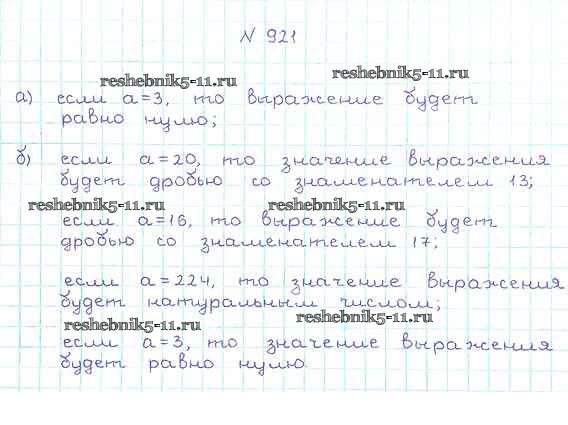 N 921
reshebnik5-11.ru
reshebnik5-11.ru
а) если а=3, то выражение будет
равно нулю;
б) если а=20, то значение выражения
будет дробью со знаменателем 13;
reshebnik5-11.ru
reshebnik5-11.ru
если а=16, то выражение будет
дробью со знаменателем 17;
если а=224, то значение выражения
будет натуральным числом;
reshebnik5-11.ru
reshebnik5-11.ru
если а=3, то значение выражения
будет равно нулю